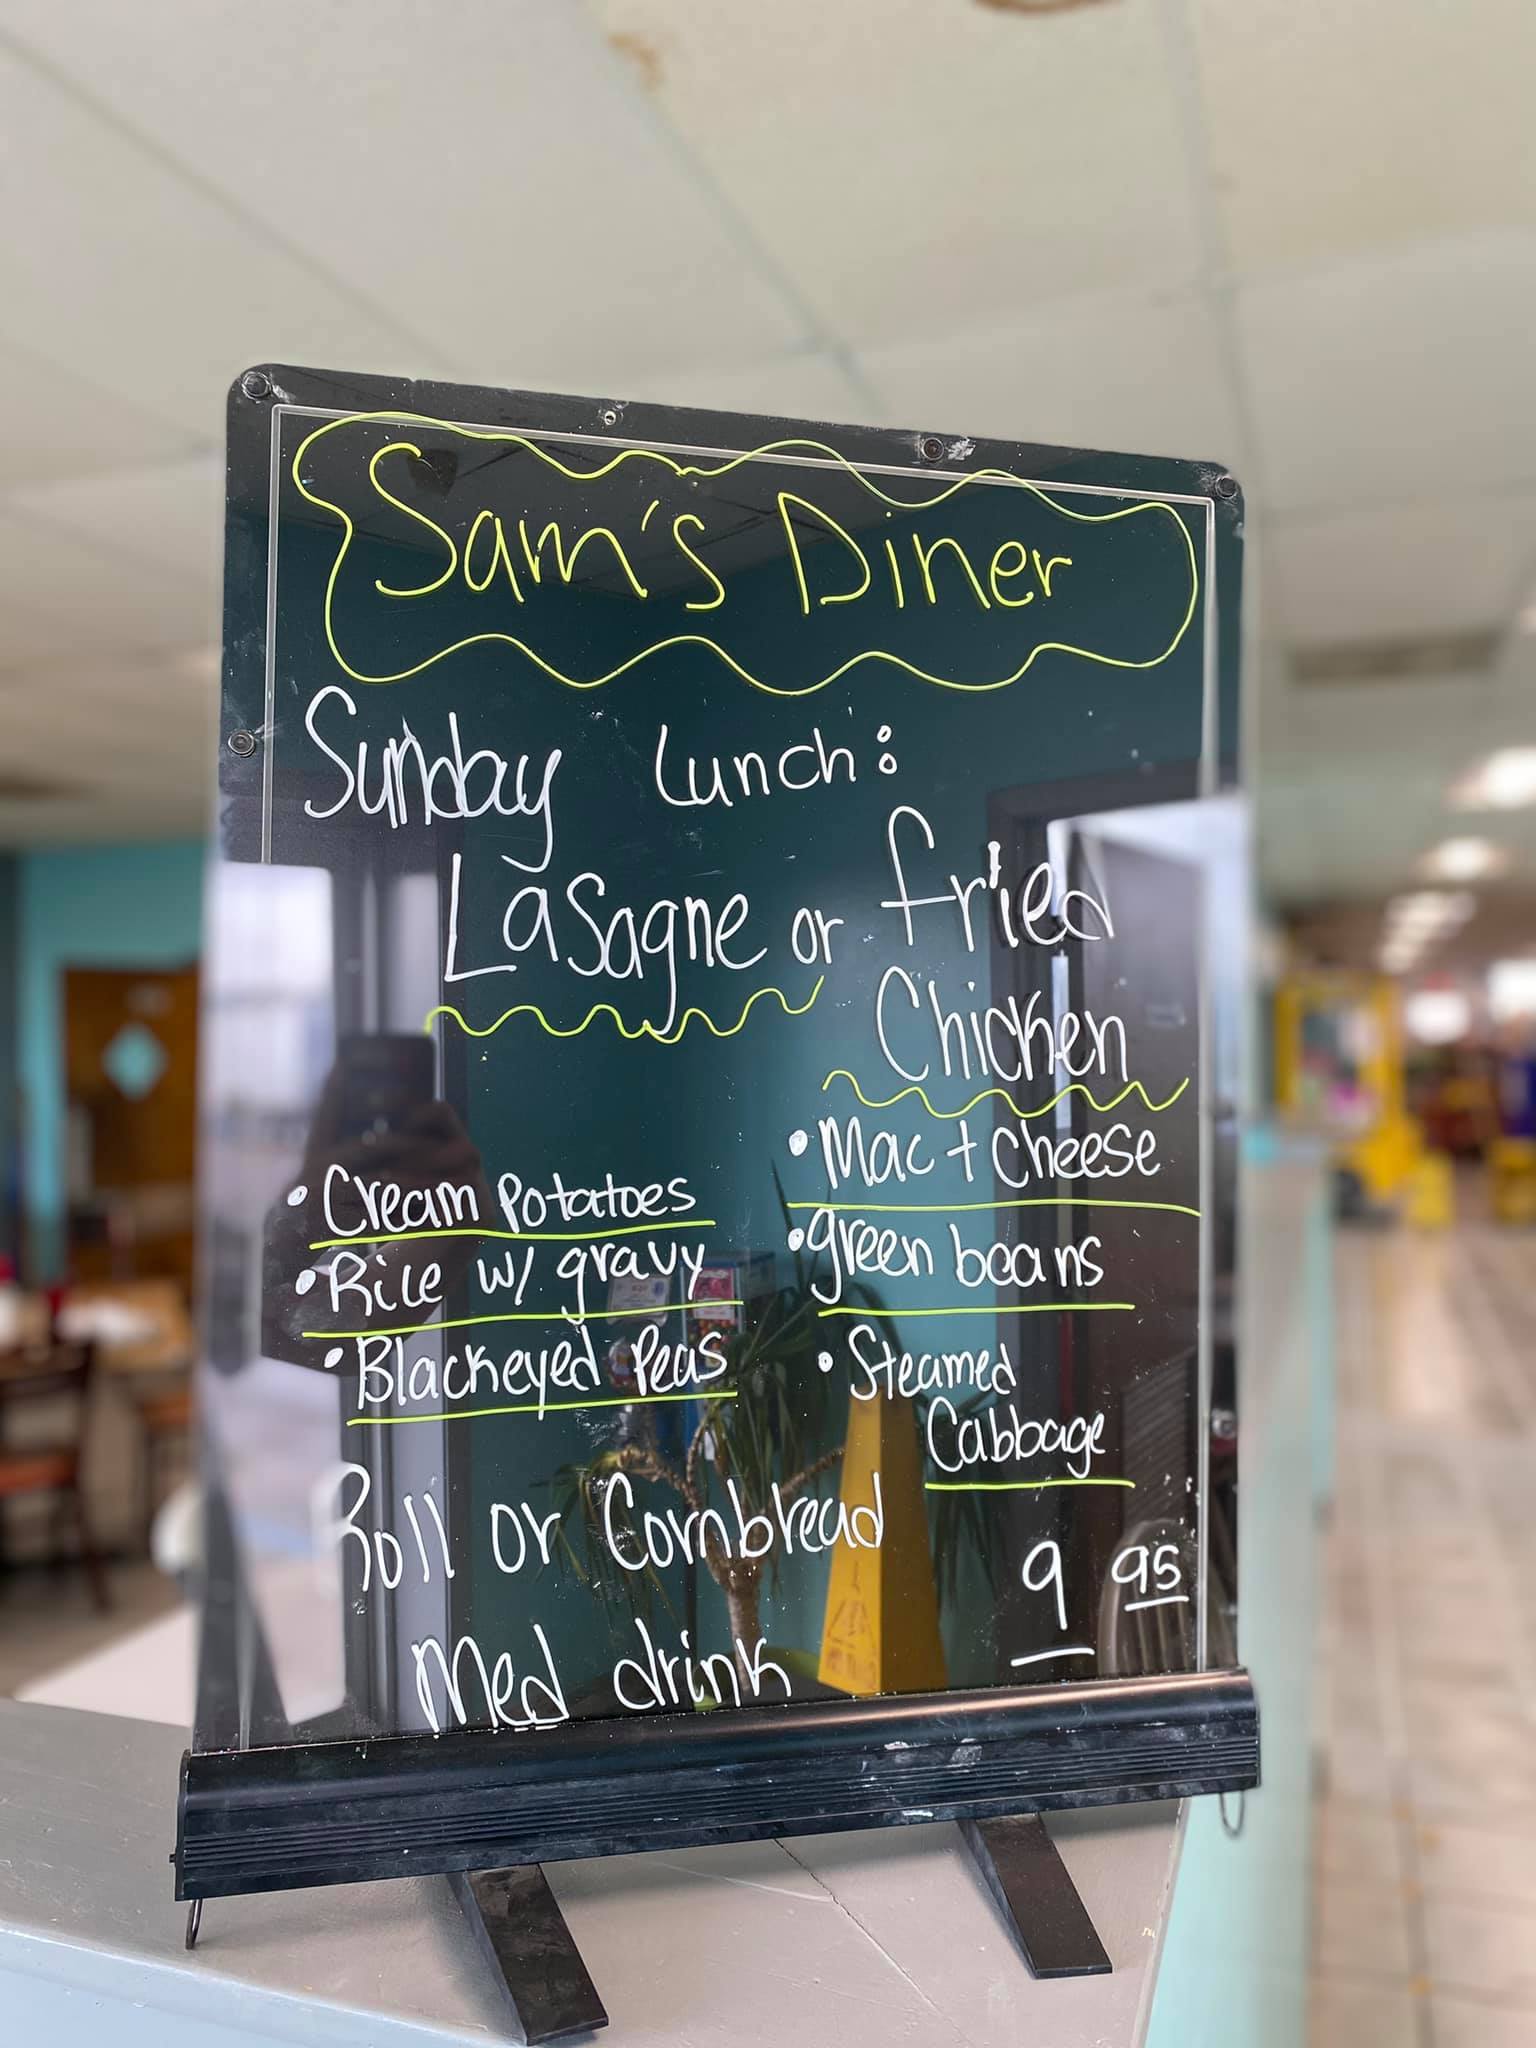 Sam's Diner
Sunday Lunch:
Lasagne or fried
Chicken
• Cream Potatoes
• Rice w/ gravy
• Blackeyed Peas
• Mac + Cheese
• green beans
• Steamed
Cabbage
Roll or Cornbread
Med drink
9 95